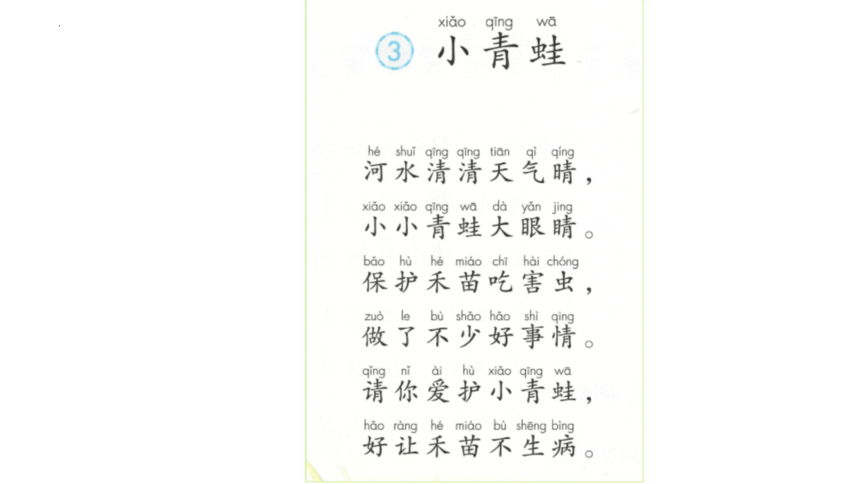 xiǎo qīng wā
3 小青蛙
hé shuǐ qīng qīng tiān qì qíng
河水清清天气晴，
xiǎo xiǎo qīng wā dà yǎn jing
小小青蛙大眼睛。
bǎo hù hé miáo chī hài chóng
保护禾苗吃害虫，
zuò le bù shǎo hǎo shì qing
做了不少好事情。
qǐng nǐ ài hù xiǎo qīng wā
请你爱护小青蛙，
hǎo ràng hé miáo bù shēng bìng
好让禾苗不生病。